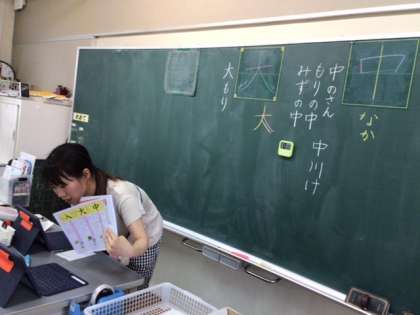 中
なか
中のさん
もりの中
みずの中
中川け
大
大
大もり
入大中